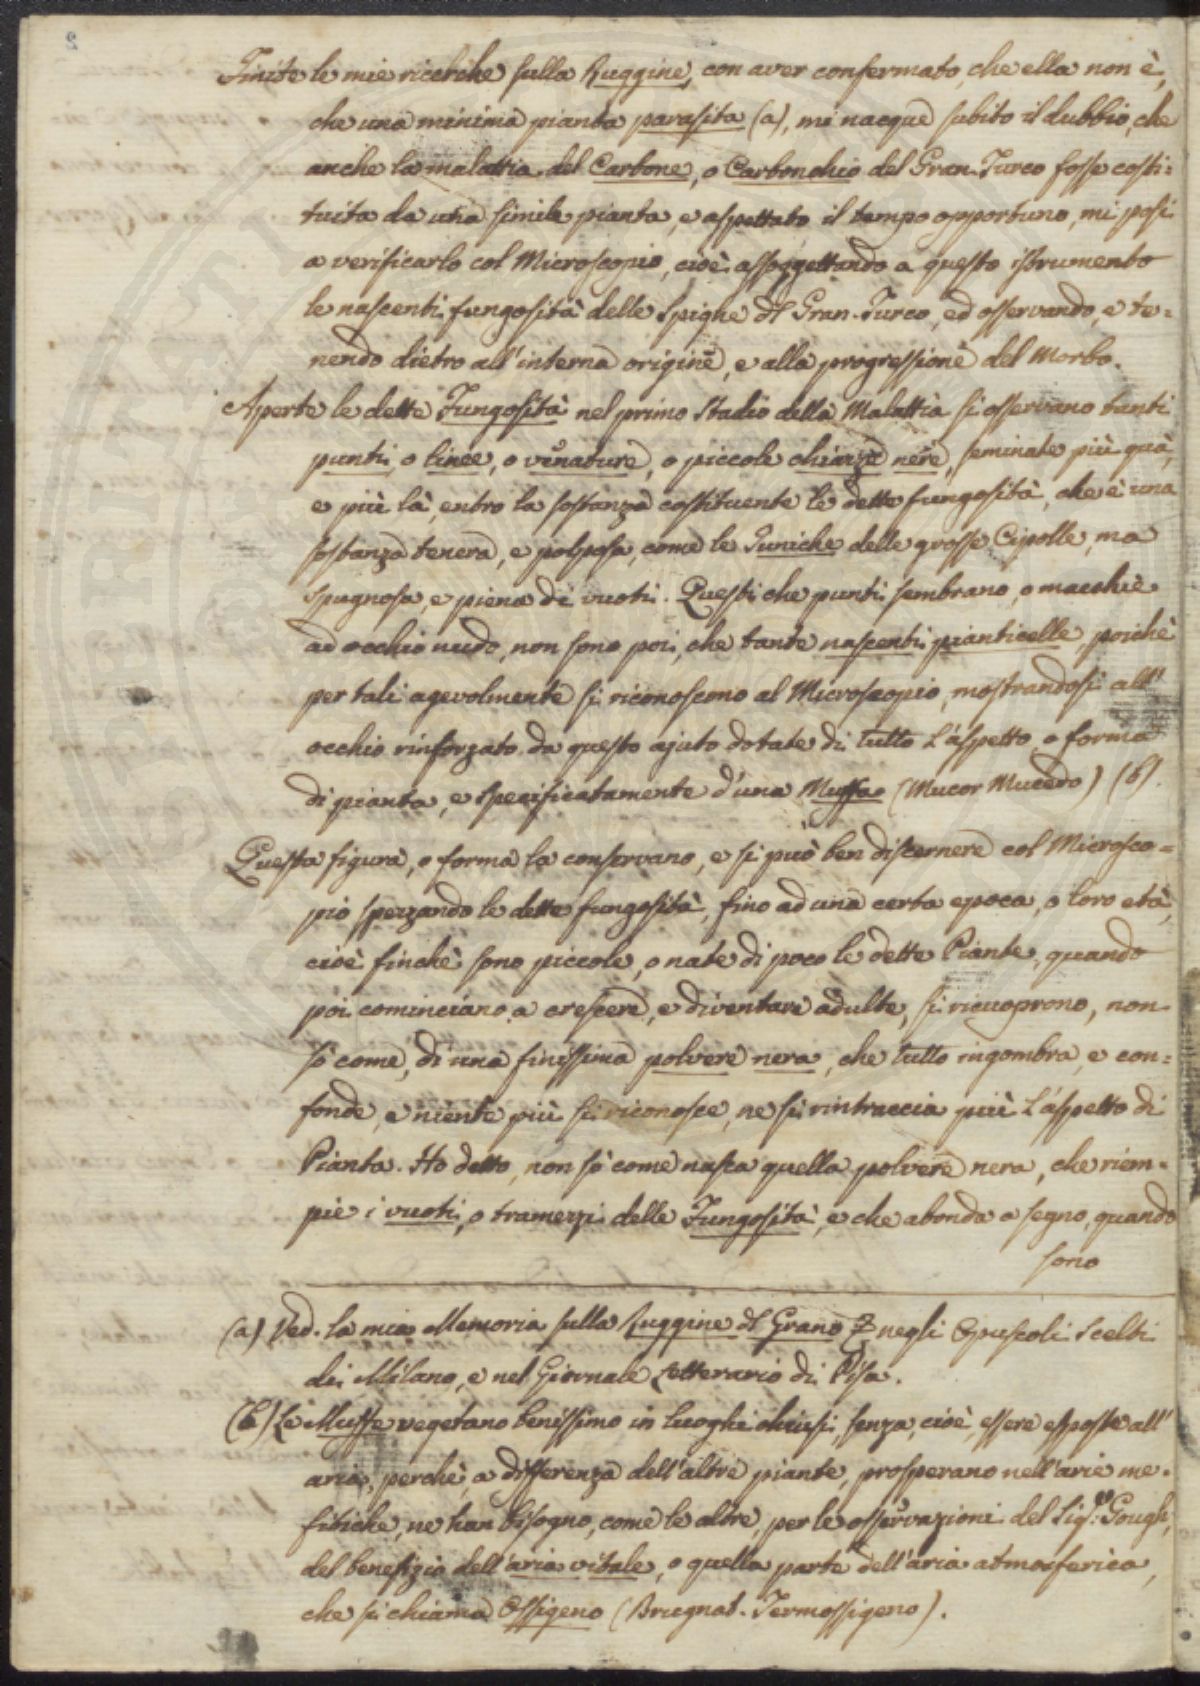 2
Finite le mie ricerche sulla Ruggine, con aver confermato, che ella non è,
che una minima pianta parasita (a), mi nacque subito il dubbio, che
anche la malattia del Carbone, o Carbonchio del Gran-Turco fosse costi=
tuita da una simile pianta, e aspettato il tempo opportuno, mi posi
a verificarlo col Microscopio, cioè assoggettando a questo istrumento
le nascenti fungosità delle Spighe dl Gran-Turco, ed osservando, e te=
nendo dietro all'interna origine, e alla progressione del Morbo.
Aperte le dette Fungosità nel primo Stadio della Malattia si osservano tanti
punti, o linee, o venature, o piccole chiazze nere, seminate più quà,
e più là, entro la sostanza costituente le dette fungosità, che è una
sostanza tenera, e polposa, come le Tuniche delle grosse Cipolle, ma
spugnosa, e piena di vuoti. Questi che punti sembrano, o macchie
ad occhio nudo, non sono poi, che tante nascenti pianticelle, poichè
per tali agevolmente si riconoscono al Microscopio, mostrandosi all'
occhio rinforzato da questo ajuto dotate di tutto l'aspetto, o forma
di pianta, e specificatamente d'una Muffa (Mucor Mucedo) (b).
Questa figura, o forma la conservano, e si può ben discernere col Microsco=
pio spezzando le dette fungosità, fino ad una certa epoca, o loro età,
cioè finchè sono piccole, o nate di poco le dette Piante, quando
poi cominciano a crescere, e diventare adulte, si ricuoprono, non
sò come, di una finissima polvere nera, che tutto ingombra, e con=
fonde, e niente più si riconosce, ne si rintraccia più l'aspetto di
Pianta. Ho detto, non sò come nasca quella polvere nera, che riem=
pie i vuoti, o tramezzi delle Fungosità, e che abonda a segno, quando
sono
(a) Ved. la mia Memoria sulla Ruggine dl Grano & negli Opuscoli Scelti
di Milano, e nel Giornale Letterario di Pisa.
(b) Le Muffe vegetano benissimo in luoghi chiusi, senza, cioè, essere esposte all'
aria, perchè, a differenza dell'altre piante, prosperano nell'arie me=
fitiche, ne han bisogno, come le altre, per le osservazioni del Sigr. Gough,
del benefizio dell'aria vitale, o quella parte dell'aria atmosferica,
che si chiama Ossigeno (Brugnat. Termossigeno).